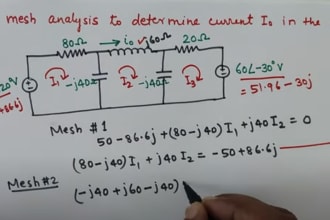 mesh analysis to determine current I₀ in the
80Ω i₀ j60Ω 20Ω
20°V I₁ -j40 I₂ -j40Ω I₃ 60∠-30°V
86.6j = 51.96 - 30j
Mesh #1
50 - 86.6j + (80-j40) I₁ + j40 I₂ = 0
(80-j40) I₁ + j40 I₂ = -50 + 86.6j
Mesh#2
(-j40 + j60 - j40)